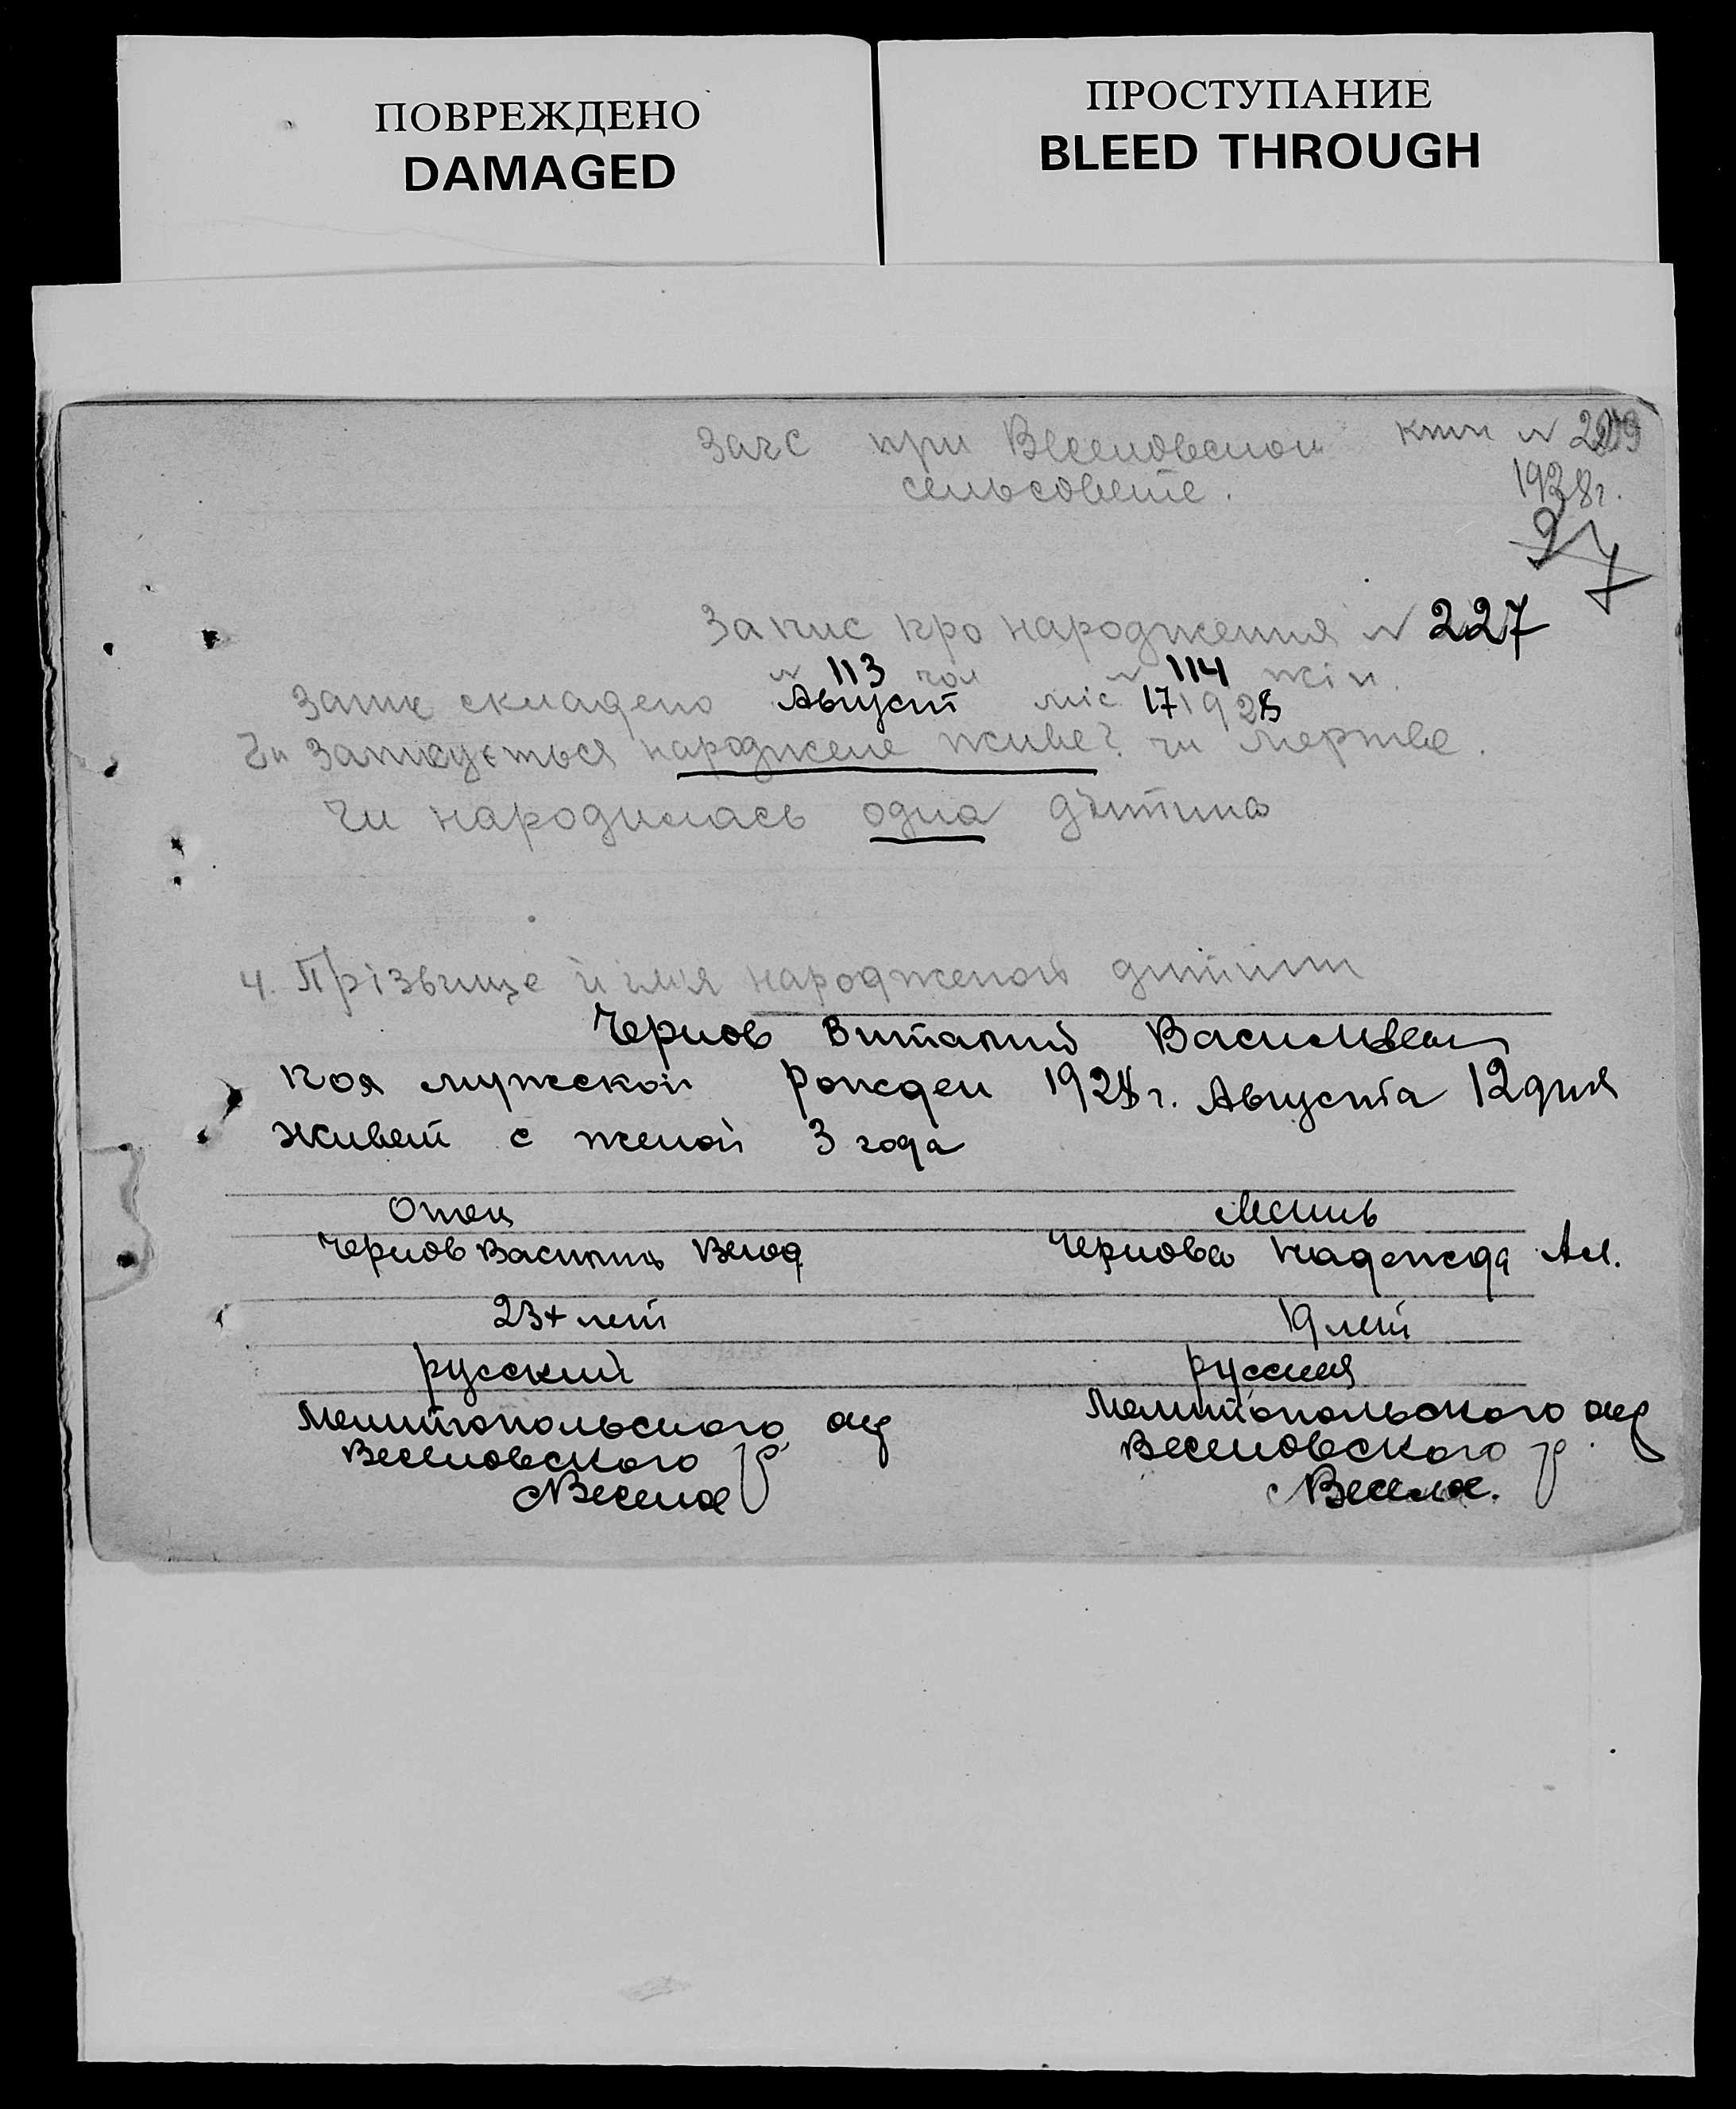 ПОВРЕЖДЕНО
DAMAGED
ПРОСТУПАНИЕ
BLEED THROUGH
Загс при Веселовском
сельсовете.
книг №
1928г.
27
Запис про народження № 227
№ 113 чол № 114 жін.
Запис складено Август міс 17 1928
Чи записується народжене живе? чи мертве.
Чи народилась одна дитина
4. Прізвище й імя народженой дитини
Чернов Виталий Васильевич
пол мужской рожден 1928г. Августа 12 дня
живет с женой 3 года
Отец
Мать
Чернов Василий Влод
Чернова Надежда Ал.
23+ лет
19 лет
русский
русская
Мелитопольского окр
Веселовского р
с Веселое
Мелитопольского окр
Веселовского р.
с Веселое.